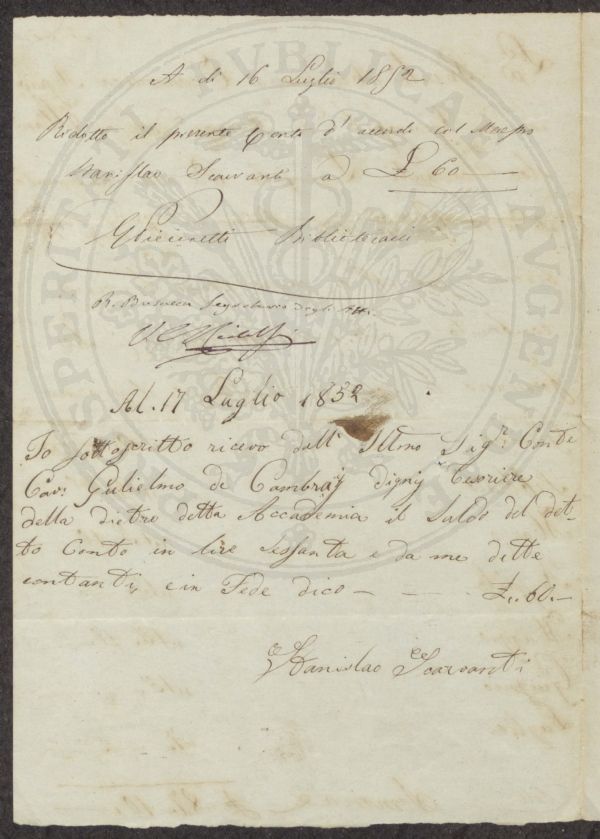 A di 16 Luglio 1852
Ridotto il presente Conto d'accordo col Maestro
Stanislao Scarvanti a £ 60
Bibliotecario
Segretario degli Atti
Al. 17 Luglio 1852
Io sottoscritto ricevo dall' Illmo Sigr. Conte
Cavr. Gulielmo de Cambraÿ Digny Tesoriere
della dietro detta Accademia il Saldo del det-
to Conto in lire Sessanta e da me dette
contanti, e in Fede dico — - - - £. 60. —
Stanislao Scarvanti